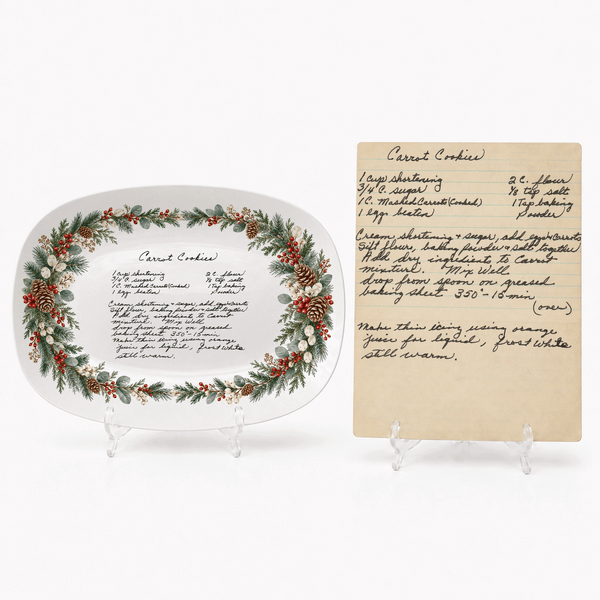 Carrot Cookies
1 cup shortening 2 C. flour
3/4 C. sugar 1/8 tsp salt
1 C. Mashed Carrots (Cooked) 1 Tsp baking
1 egg beaten Powder
Cream shortening + sugar, add egg + Carrots
Sift flour, baking powder + salt together
Add dry ingredient to Carrot
mixture. Mix Well
drop from spoon on greased
baking sheet 350° - 15 min
Make thin icing using orange
juice for liquid, frost while
still warm.
Carrot Cookies
1 cup shortening 2 C. flour
3/4 C. sugar 1/8 tsp salt
1 C. Mashed Carrots (Cooked) 1 Tsp baking
1 egg beaten Powder
Cream shortening + sugar, add egg + Carrots
Sift flour, baking powder + salt together
Add dry ingredient to Carrot
mixture. Mix Well
drop from spoon on greased
baking sheet 350° - 15 min
(over)
Make thin icing using orange
juice for liquid, frost while
still warm.